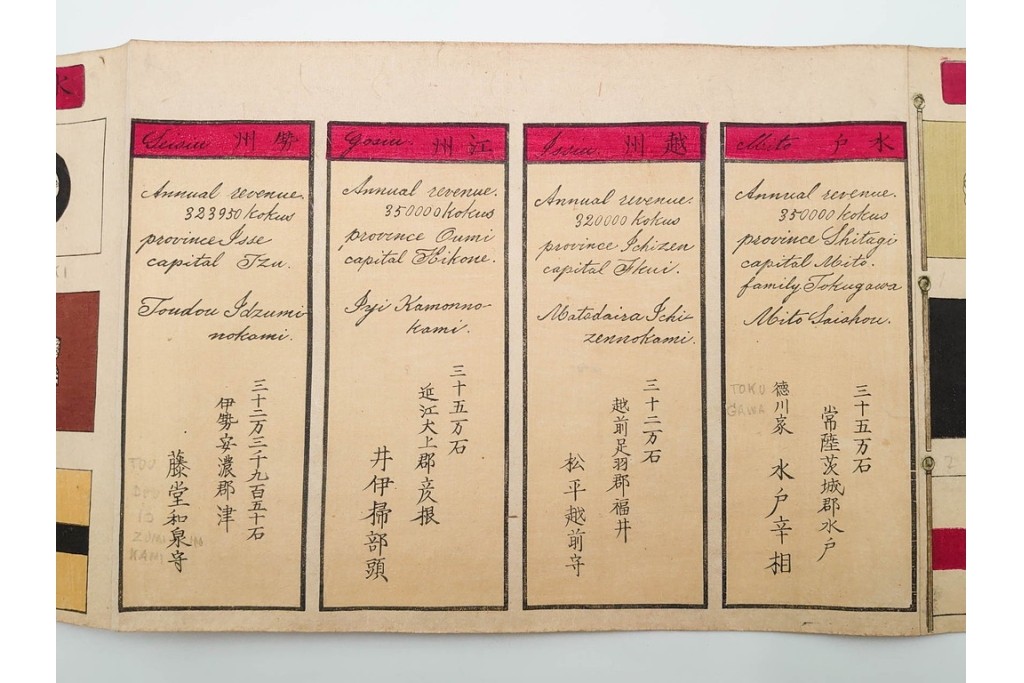 Seisiu 勢州
Annual revenue.
323950 Kokus
province Isse
capital Tzu.
Toudou Idzumi-
nokami.
三十二万三千九百五十石
伊勢安濃郡津
藤堂和泉守
TOU
DOU
IDZUMI
KAMI
Gosiu. 江州
Annual revenue.
350000 Kokus
province Oumi
capital Hikone.
Iyi Kamonno-
kami.
三十五万石
近江犬上郡彦根
井伊掃部頭
越州
Annual revenue.
320000 Kokus
province Ichizen
capital Fkui.
Matsdaira Ichi-
zennokami.
三十二万石
越前足羽郡福井
松平越前守
Mito 水戸
Annual revenue.
350000 Kokus
province Shitagi
capital Mito.
family Tokugawa
Mito Saishou.
三十五万石
常陸茨城郡水戸
徳川家 水戸宰相
TOKU
GAWA
水
KI